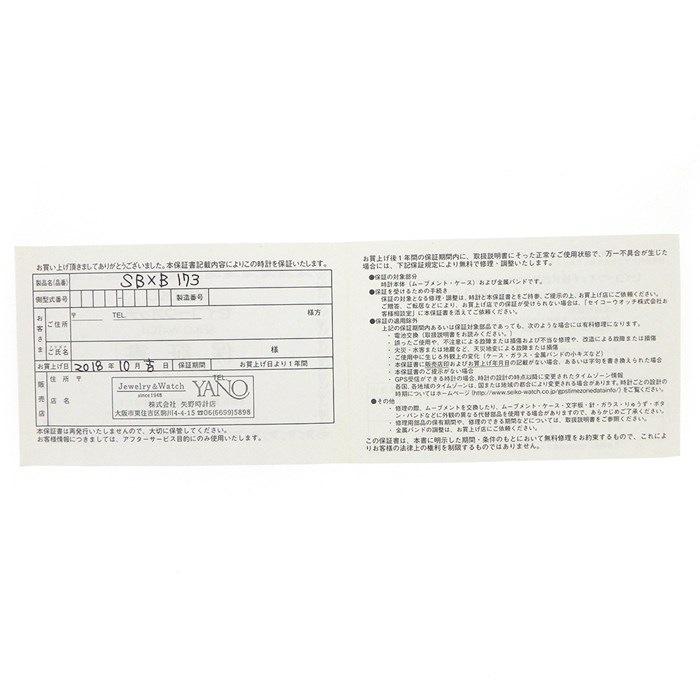 お買い上げ頂きましてありがとうございました。本保証書記載内容によりこの時計を保証いたします。
製品名(品番) SBXB 173
側型式番号 製造番号
お客さま ご住所 〒 TEL. 様方
ご氏名 様
お買上げ日 2018 年 10 月 吉 日 保証期間 お買上げ日より1年間
販売店 住所 〒 TEL
店名
Jewelry&Watch YANO
since1948
株式会社 矢野時計店
大阪市東住吉区駒川4-4-15 ☎06(6699)5898
本保証書は再発行いたしませんので、大切に保管してください。
お客様情報につきましては、アフターサービス目的にのみ使用いたします。
お買上げ後1年間の保証期間内に、取扱説明書にそった正常なご使用状態で、万一不具合が生じた
場合には、下記保証規定により無料で修理・調整いたします。
●保証の対象部分
時計本体(ムーブメント・ケース)および金属バンドです。
●保証を受けるための手続き
保証の対象となる修理・調整は、時計と本保証書とをご持参、ご提示の上、お買上げ店にご依頼ください。
ご贈答、ご転居などにより、お買上げ店での保証が受けられない場合は、「セイコーウオッチ株式会社お
客様相談室」に本保証書を添えてご依頼ください。
●保証の適用除外
上記の保証期間内あるいは保証対象部品であっても、次のような場合には有料修理になります。
・電池交換(取扱説明書をお読みください。)
・誤ったご使用や、不注意による故障または損傷および不当な修理や、改造による故障または損傷
・火災・水害または地震など、天災地変による故障または損傷
・ご使用中に生じる外観上の変化(ケース・ガラス・金属バンドの小キズなど)
・本保証書に販売店印およびお買上げ年月日の記載がない場合、あるいは字句を書き換えられた場合
・本保証書のご提示がない場合
・GPS受信ができる時計の場合、時計の設計の時点以降に変更されたタイムゾーン情報
各国、各地域のタイムゾーンは、国または地域の都合により変更される場合があります。時計ごとの設計の
時期についてはホームページ(http://www.seiko-watch.co.jp/gpstimezonedatainfo/)をご覧ください。
●その他
・修理の際、ムーブメントを交換したり、ムーブメント・ケース・文字板・針・ガラス・りゅうず・ボタ
ン・バンドなどに外観の異なる代替部品を使用する場合がありますので、あらかじめご了承ください。
・修理用部品の保有期間や、修理のできる期間などについては、取扱説明書をご参照ください。
・金属バンドの調整は、お買上げ店にご依頼ください。
この保証書は、本書に明示した期間・条件のもとにおいて無料修理をお約束するもので、これによ
りお客様の法律上の権利を制限するものではありません。